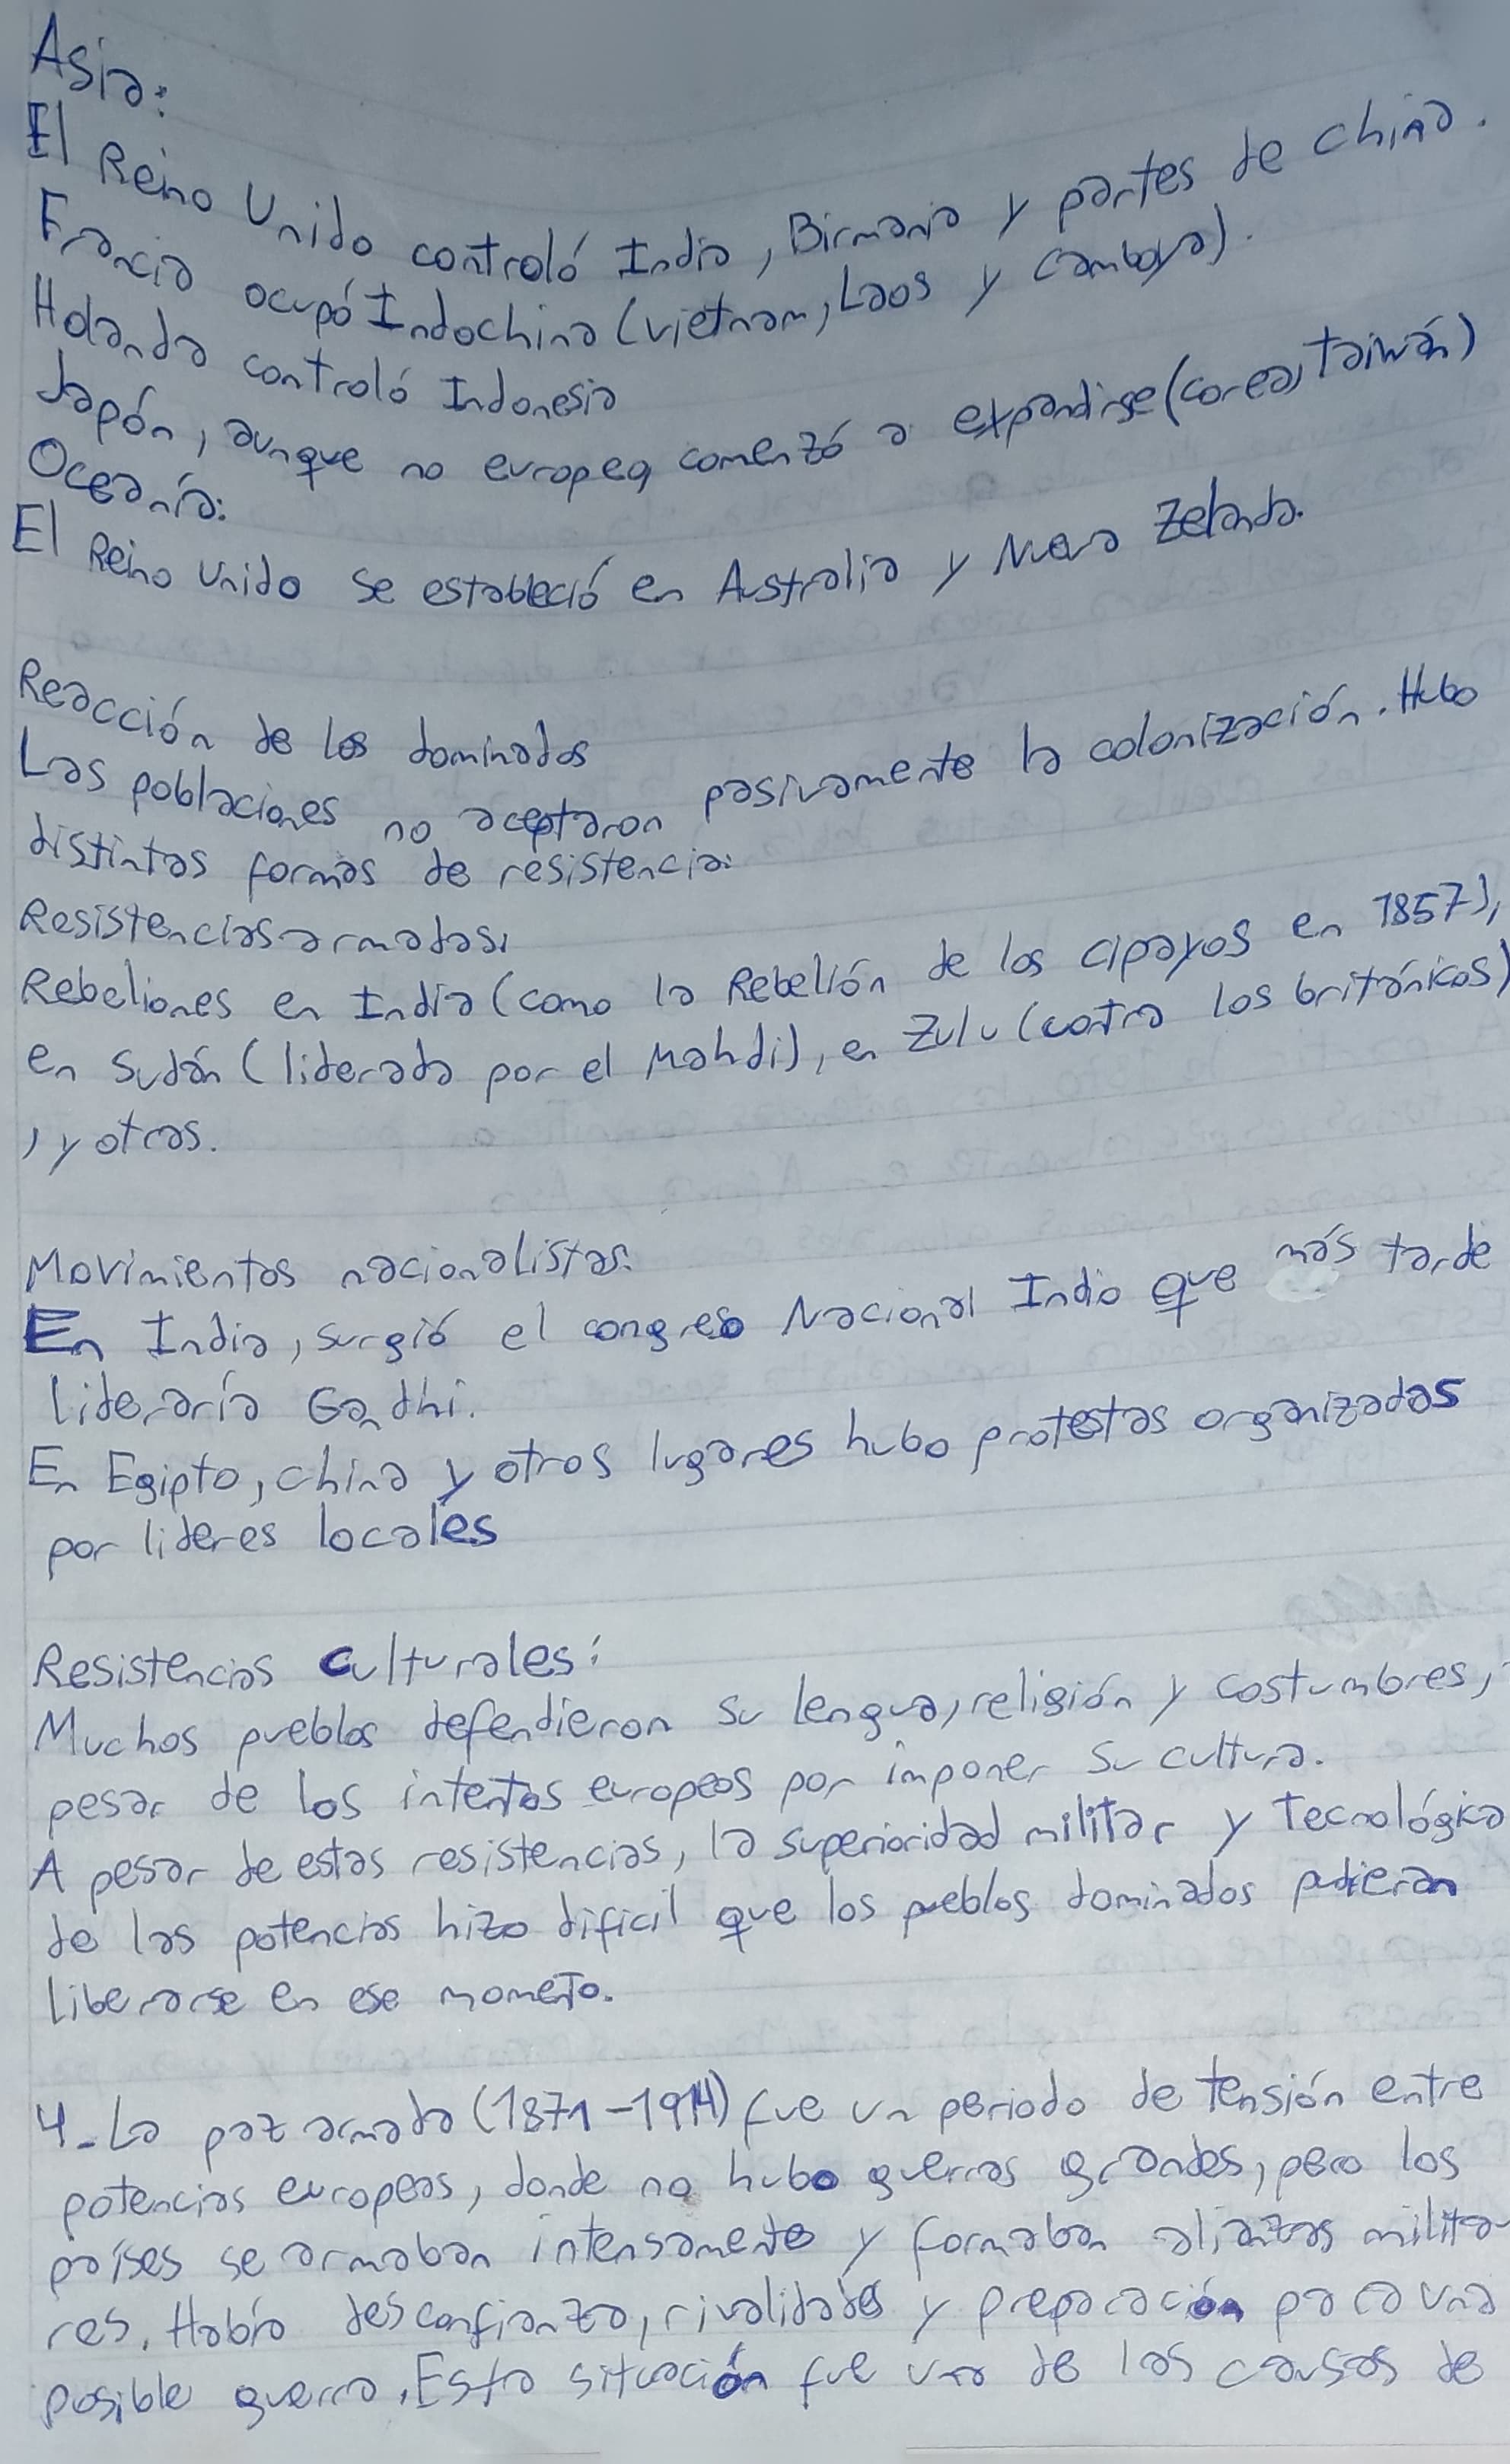 Asia:
El Reino Unido controló India, Birmania y partes de china.
Francia ocupó Indochina (vietnam, Laos y camboya).
Holanda controló Indonesia
Japón, aunque no europea comenzó a expandirse (corea, taiwán)
Oceanía:
El Reino Unido se estableció en Australia y Nueva Zelanda.
Reacción de los dominados
Las poblaciones no aceptaron pasivamente la colonización. Hubo
distintas formas de resistencia:
Resistencias armadas:
Rebeliones en India (como la Rebelión de los cipayos en 1857),
en Sudán (liderada por el Mahdi), en Zulu (contra los británicos)
, y otras.
Movimientos nacionalistas:
En India, surgió el congreso Nacional Indio que más tarde
lideraría Gandhi.
En Egipto, china y otros lugares hubo protestas organizadas
por lideres locales
Resistencias culturales:
Muchos pueblos defendieron su lengua, religión y costumbres,
pesar de los intentos europeos por imponer su cultura.
A pesar de estas resistencias, la superioridad militar y tecnológica
de las potencias hizo dificil que los pueblos dominados pudieran
liberarse en ese momento.
4-La paz armada (1871-1914) fue un periodo de tensión entre
potencias europeas, donde no hubo guerras grandes, pero los
países se armaban intensamente y formaban alianzas milita-
res. Había desconfianza, rivalidades y preparación para una
posible guerra. Esta situación fue una de las causas de